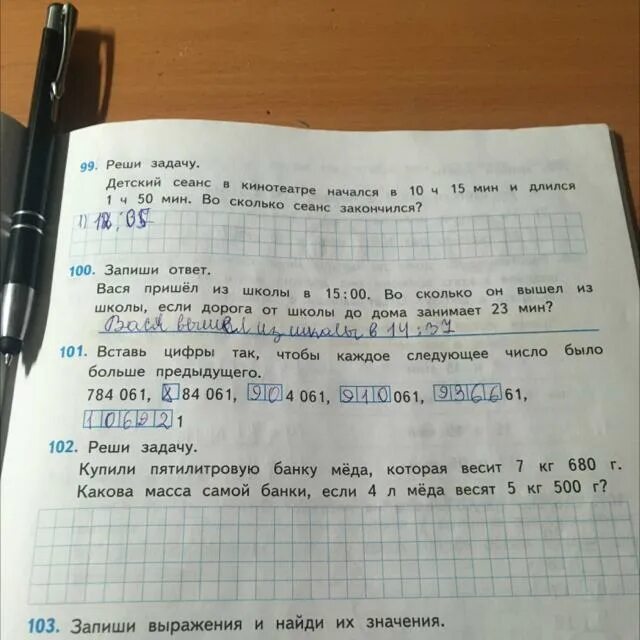 99. Реши задачу.
Детский сеанс в кинотеатре начался в 10 ч 15 мин и длился
1 ч 50 мин. Во сколько сеанс закончился?
1) 12:05
100. Запиши ответ.
Вася пришёл из школы в 15:00. Во сколько он вышел из
школы, если дорога от школы до дома занимает 23 мин?
Вася вышел из школы в 14:37
101. Вставь цифры так, чтобы каждое следующее число было
больше предыдущего.
784 061, 884 061, 904 061, 910 061, 936661,
1069221
102. Реши задачу.
Купили пятилитровую банку мёда, которая весит 7 кг 680 г.
Какова масса самой банки, если 4 л мёда весят 5 кг 500 г?
103. Запиши выражения и найди их значения.